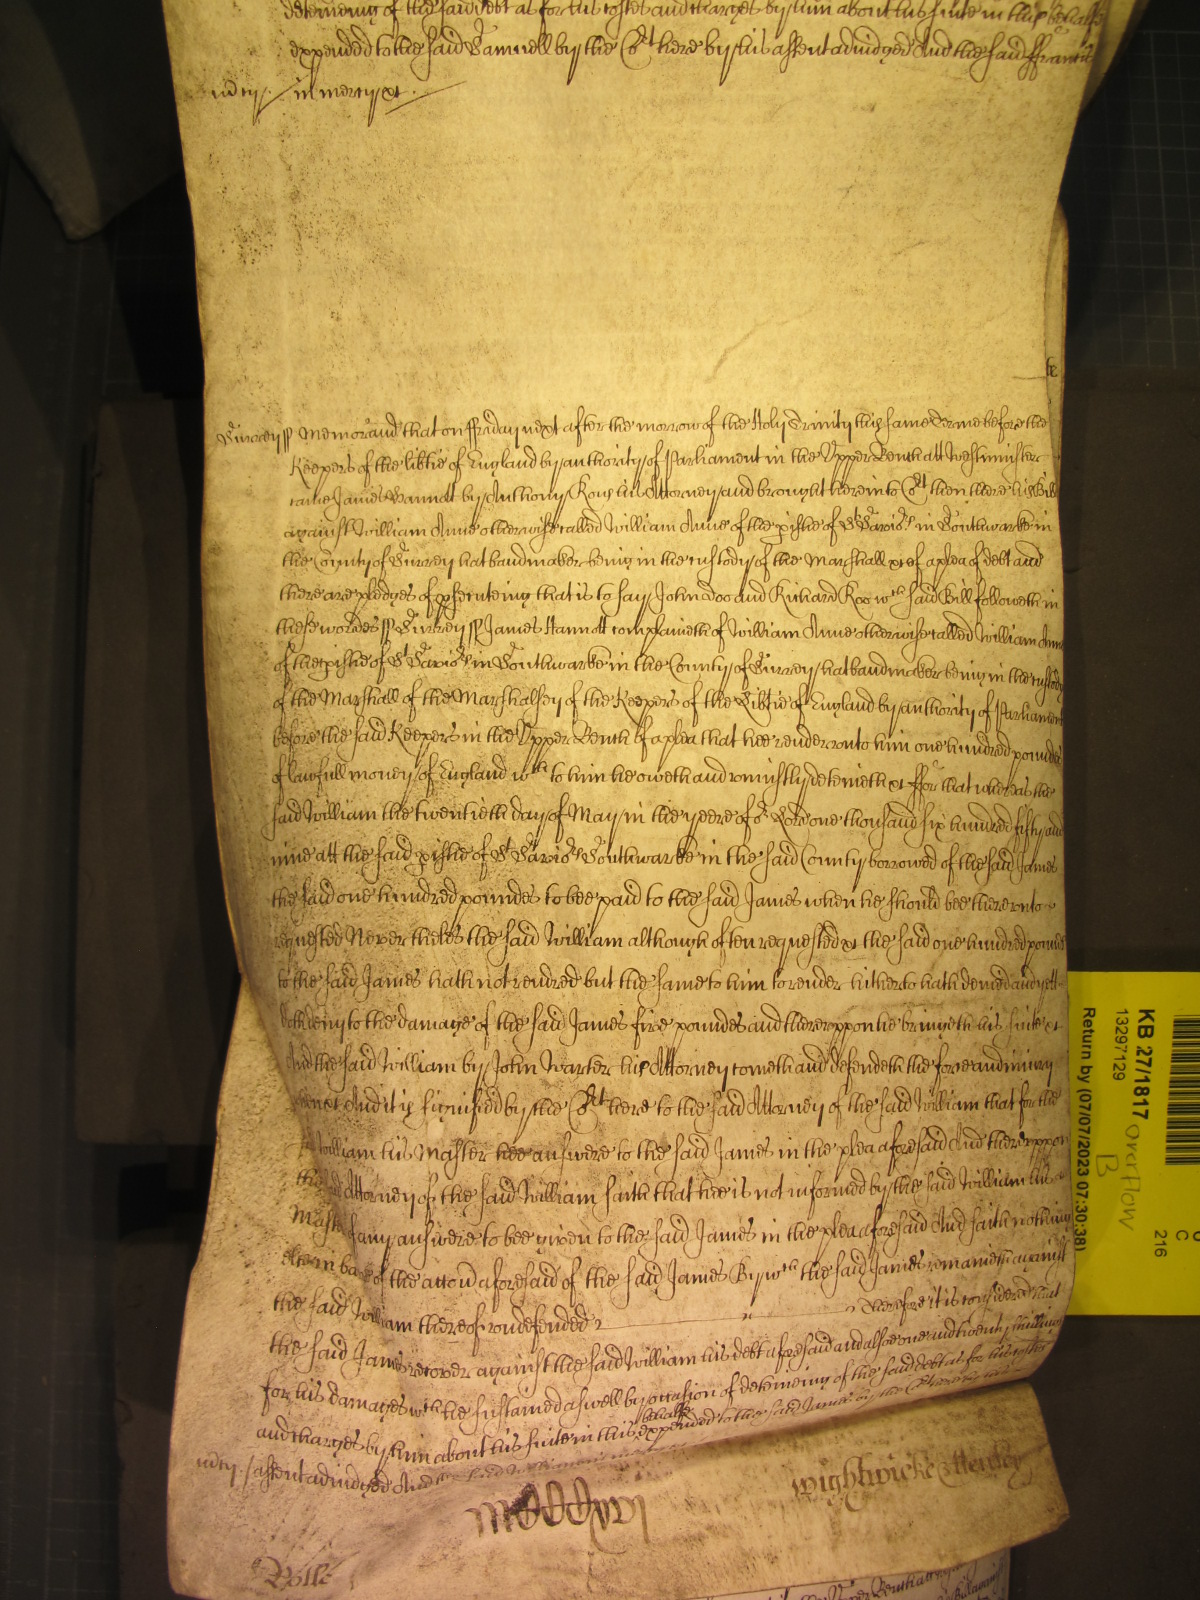 deteineing of the said debt as for his costes and charges by him about his suite in this behalfe
expended to the said Samuell by the Cort here by his assent adiudged And the said ffrancis
mcy / in mercy &c
Surrey ss Memorand that on ffryday next after the morrow of the Holy Trinity this same Terme before the
Keepers of the lib'tie of England by authority of Parliament in the Upper Bench att Westminster
came James Hannott by Anthony Rous his Attorney and brought here into Cort then there his Bill
against William Anne otherwise called William Anne of the p'ishe of St Savior's in Southwarke in
the County of Surrey hatbandmaker being in the custody of the Marshall &c of a plea of debt and
there are pledges of p'secuteing that is to say John Doo and Richard Roo wch said Bill followeth in
these wordes ss Surrey ss James Hannott complaineth of William Anne otherwise called William Anne
of the p'ishe of St Savior's in Southwarke in the County of Surrey hatbandmaker being in the custody
of the Marshall of the Marshalsey of the Keepers of the Lib'tie of England by authority of Parliament
before the said Keepers in the Upper Bench of a plea that hee render unto him one hundred poundes
of lawfull money of England wch to him he oweth and uniustly deteineth &c ffor that whereas the
said William the twentieth day of May in the yeere of or Lord one thousand six hundred fifty and
nine att the said p'ishe of St Savior's Southwarke in the said County borrowed of the said James
the said one hundred poundes to bee paid to the said James when he should bee thereunto
requested Never theles the said William although often requested &c the said one hundred poundes
to the said James hath not rendred but the same to him to render hitherto hath denied and yett
doth deny to the damage of the said James five poundes and thereuppon he bringeth his suite &c
And the said William by John Warter his Attorney cometh and defendeth the force and iniury
when &c And it is signified by the Cort here to the said Attorney of the said William that for the
said William his Master hee answere to the said James in the plea aforesaid And thereuppon
the said Attorney of the said William saith that hee is not informed by the said William his
Master of any answere to bee given to the said James in the plea aforesaid And saith nothing
else in barr of the accon aforesaid of the said James By wch the said James remaineth against
the said William thereof undefended Therefore it is considered that
the said James recover against the said William his debt aforesaid and alsoe one and twenty shillings
for his damages wch he sustained aswell by occasion of deteineing of the said debt as for his costes
and charges by him about his suite in this behalfe expended to the said James by the Cort here by
mcy / assent adiudged And the said William in
Wightwicke Attersley
Rolle
KB 27/1817 overflow
B
13297129
Return by (07/07/2023 07:30:38)
C
216